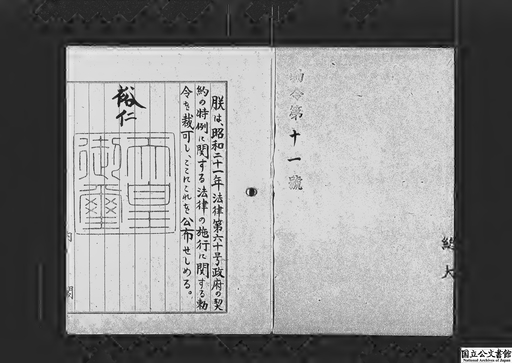 勅令第十一號
朕は、昭和二十一年法律第六十号政府の契
約の特例に関する法律の施行に関する勅
令を裁可し、ここにこれを公布せしめる。
裕仁
天皇
御璽
内閣
国立公文書館
National Archives of Japan